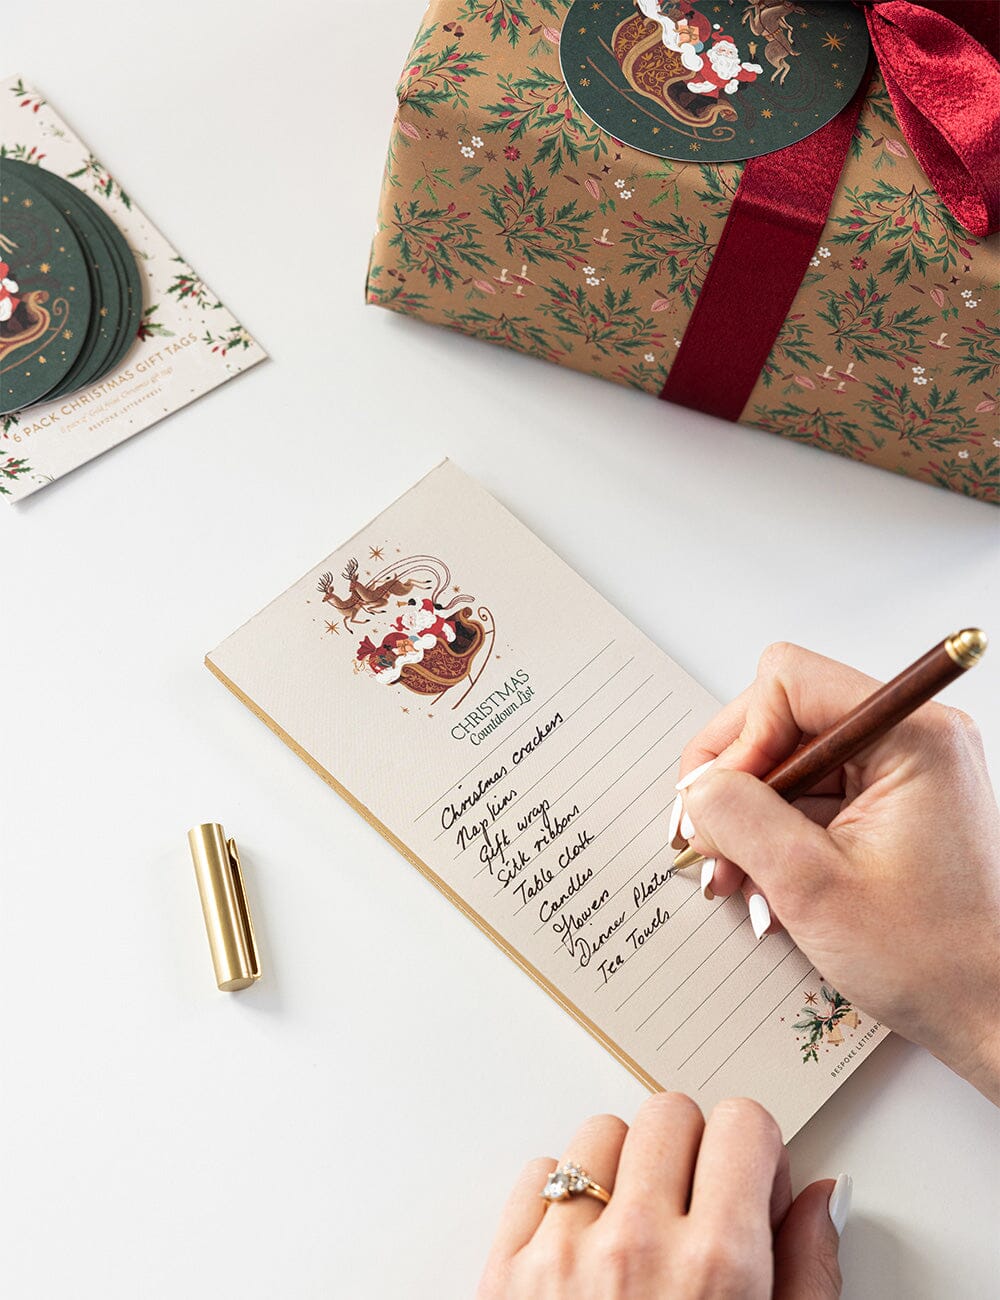 6 PACK CHRISTMAS GIFT TAGS
6 pack 4" Gold Noir Christmas gift tags
BESPOKE LETTERPRESS
CHRISTMAS
Countdown List
Christmas crackers
Napkins
Gift wrap
Silk ribbons
Table cloth
Candles
Flowers
Dinner Plates
Tea Towels
BESPOKE LETTERPR